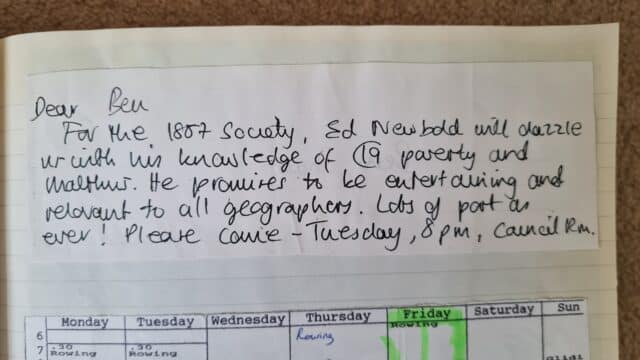 Dear Ben
For the 1887 Society, Ed Newbold will dazzle
us with his knowledge of 19 poverty and
Malthus. He promises to be entertaining and
relevant to all geographers. Lots of port as
ever! Please come - Tuesday, 8pm, Council Rm.
Monday Tuesday Wednesday Thursday Friday Saturday Sun
6 Rowing Rowing
7 .30 .30
Rowing Rowing